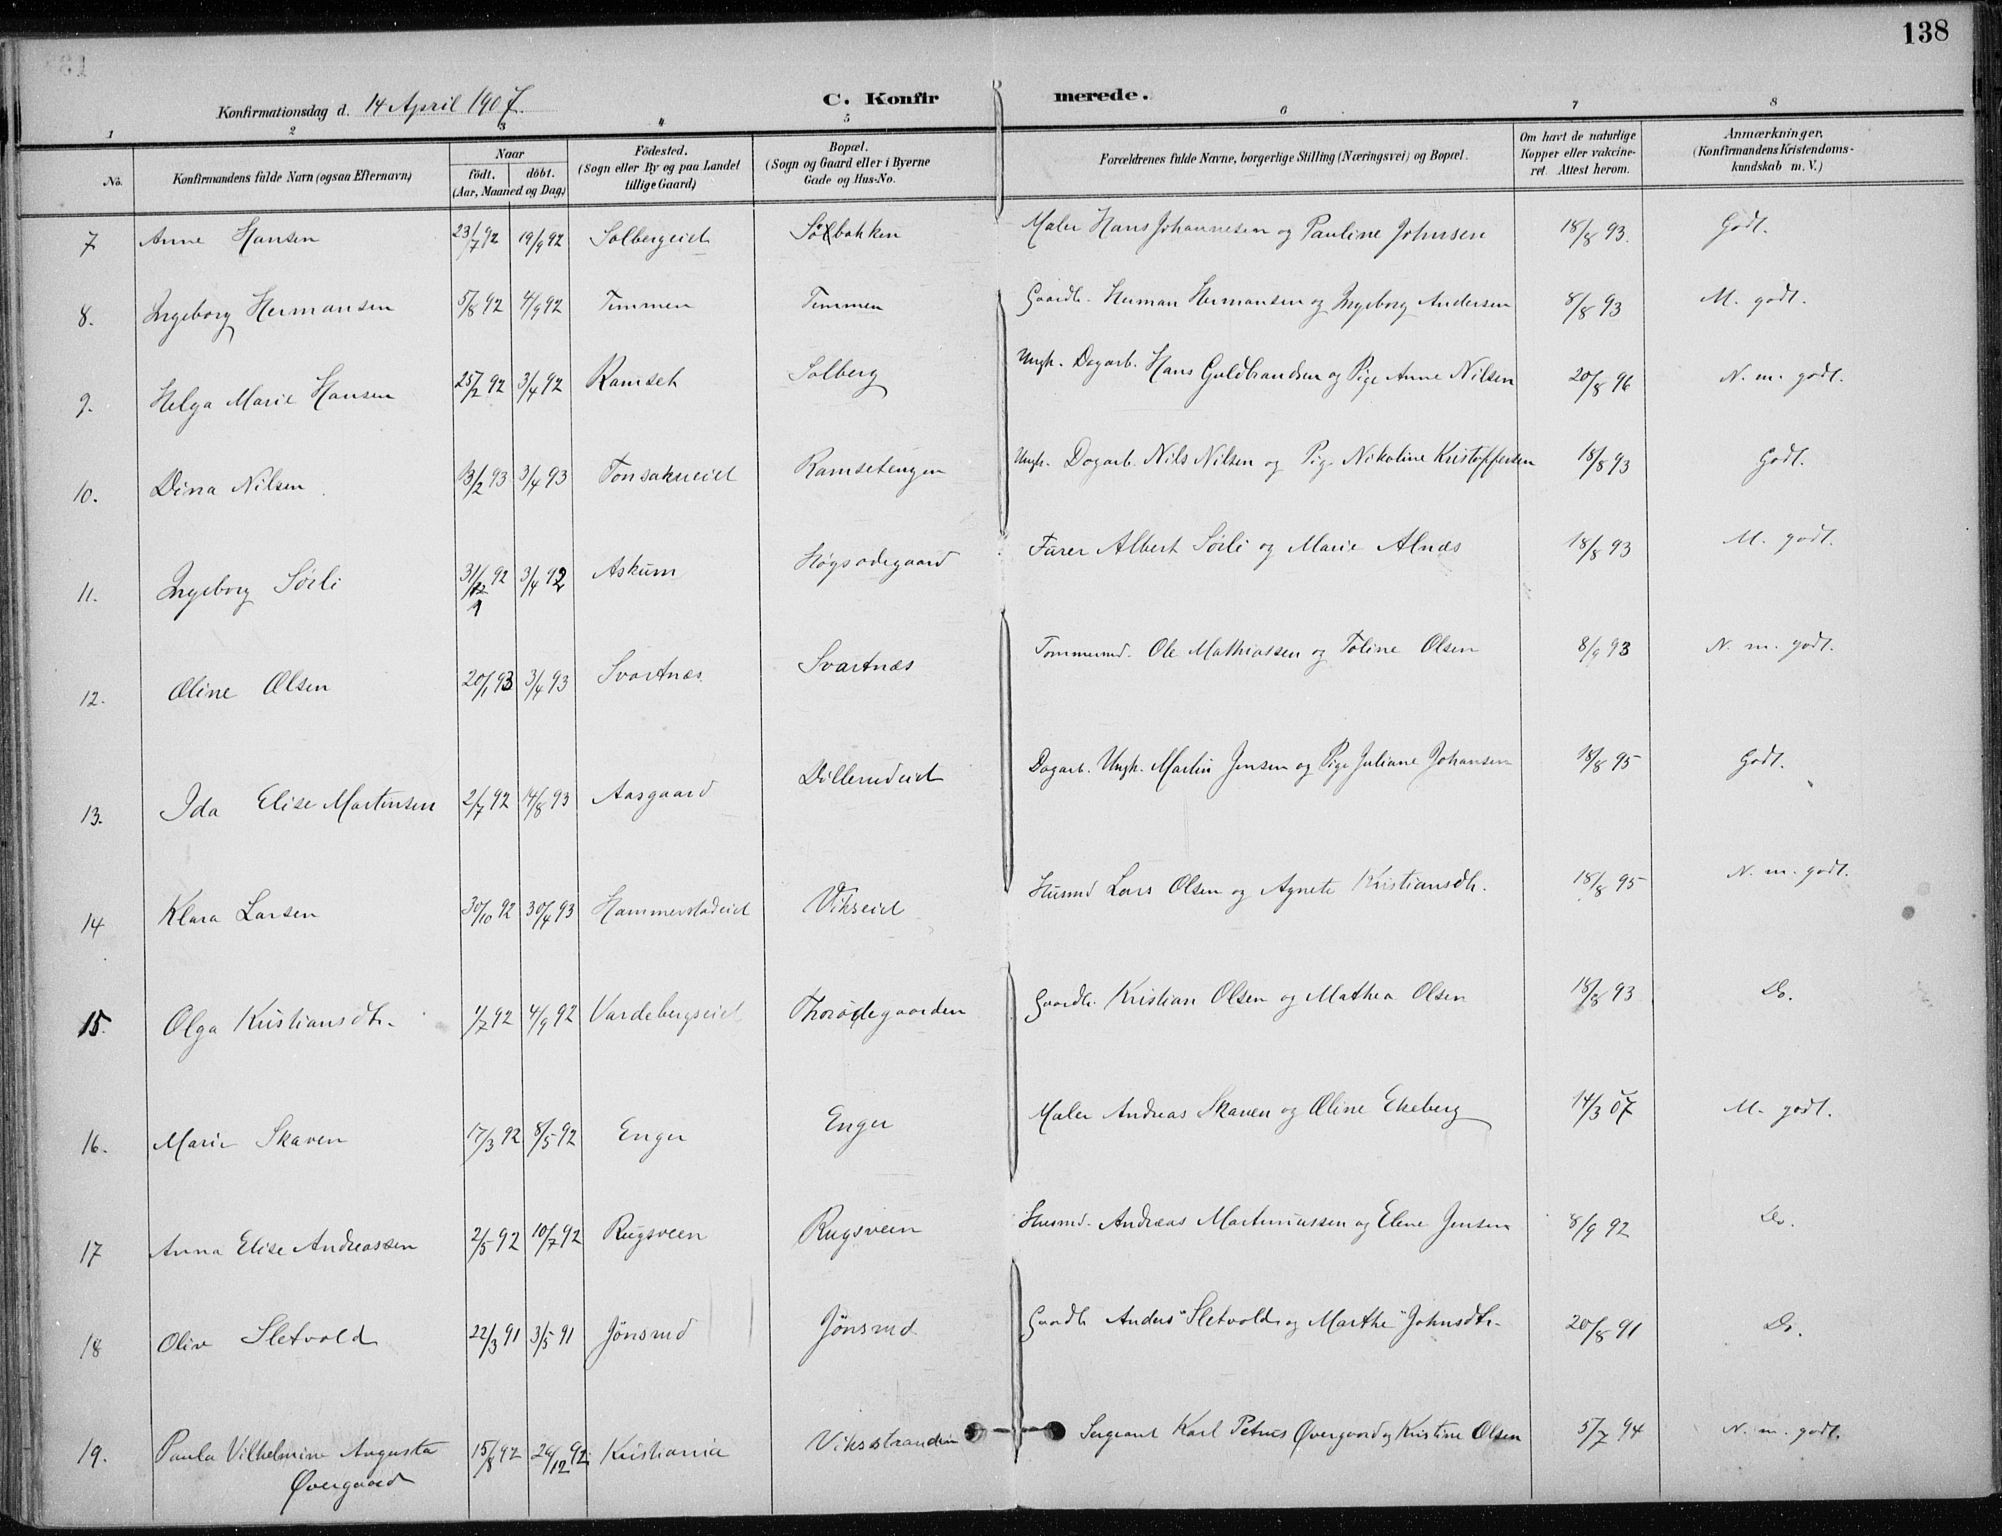 138
Konfirmationsdag d. 14 April 1907.
C. Konfirmerede.
1 2 3 4 5 6 7 8
No. Konfirmandens fulde Navn (ogsaa Efternavn) Naar födt. döbt. (Aar, Maaned og Dag.) Födested. (Sogn eller By og paa Landet tillige Gaard.) Bopæl. (Sogn og Gaard eller i Byerne Gade og Hus-No. Forældrenes fulde Navne, borgerlige Stilling (Næringsvei) og Bopæl. Om havt de naturlige Kopper eller vakcineret. Attest herom. Anmærkninger. (Konfirmandens Kristendomskundskab m. V.)
7 Anne Hansen 23/7 92 19/9 92 Solbergeiet Sölbakken Maler Hans Johannesen og Pauline Johnsen 18/8 93. Godt.
8. Ingeborg Hermansen 5/8 92 4/9 92 Timmen Timmen Gaardb. Herman Hermansen og Ingeborg Andersen 8/8 93 M. godt.
9. Helga Marie Hansen 25/2 92 3/4 92 Ramset Solberg Ungk. Dagarb. Hans Guldbrandsen og Pige Anne Nilsen 20/8 96 N. m. godt.
10. Dina Nilsen 13/2 93 3/4 93 Tonsakereiet Ramsetengen Ungk. Dagarb. Nils Nilsen og Pige Nikoline Kristoffersen 18/8 93 Godt.
11. Ingeborg Söili 31/12 92 3/4 92 Askum Høgsødegaard Furer Albert Söili og Marie Alnæs 18/8 93 M. godt.
12. Oline Olsen 20/1 93 3/4 93 Svartnæs Svartnæs Tømmermd. Ole Mathiassen og Toline Olsen 8/9 93 N. m. godt.
13. Ida Elise Martinsen 2/7 92 14/8 93 Aasgaard Dillerudeiet Dagarb. Ungk. Martin Jensen og Pige Juliane Johansen 18/8 95 Godt.
14 Klara Larsen 30/10 92 30/4 93 Hammerstadeiet Vikseiet Husmd Lars Olsen og Agnete Kristiansdtr. 18/8 95 N. m. godt.
15. Olga Kristiansdtr. 1/7 92 4/9 92 Vardebergseiet Thorödegaarden Gaardb. Kristian Olsen og Mathea Olsen 18/8 93 Do.
16. Marie Skaven 17/3 92 8/5 92 Enger Enger Maler Andreas Skaven og Oline Ekeberg 14/3 07 M. godt.
17 Anna Elise Andreassen 2/5 92 10/7 92 Rugsveen Rugsveen Husmd. Andreas Martiniussen og Elene Jensen 8/9 92 Do.
18 Oliv Sletvold 22/3 91 3/5 91 Jönsrud Jönsrud Gaardb Anders Sletvold og Marthe Johnsdtr. 20/8 91 Do.
19. Paula Vilhelmine Augusta Øvergaard 15/8 92 26/12 92. Kristiania Viksstranden Sergeant Karl Petrus Øvergaard og Kristine Olsen 5/7 94 N. m. godt.